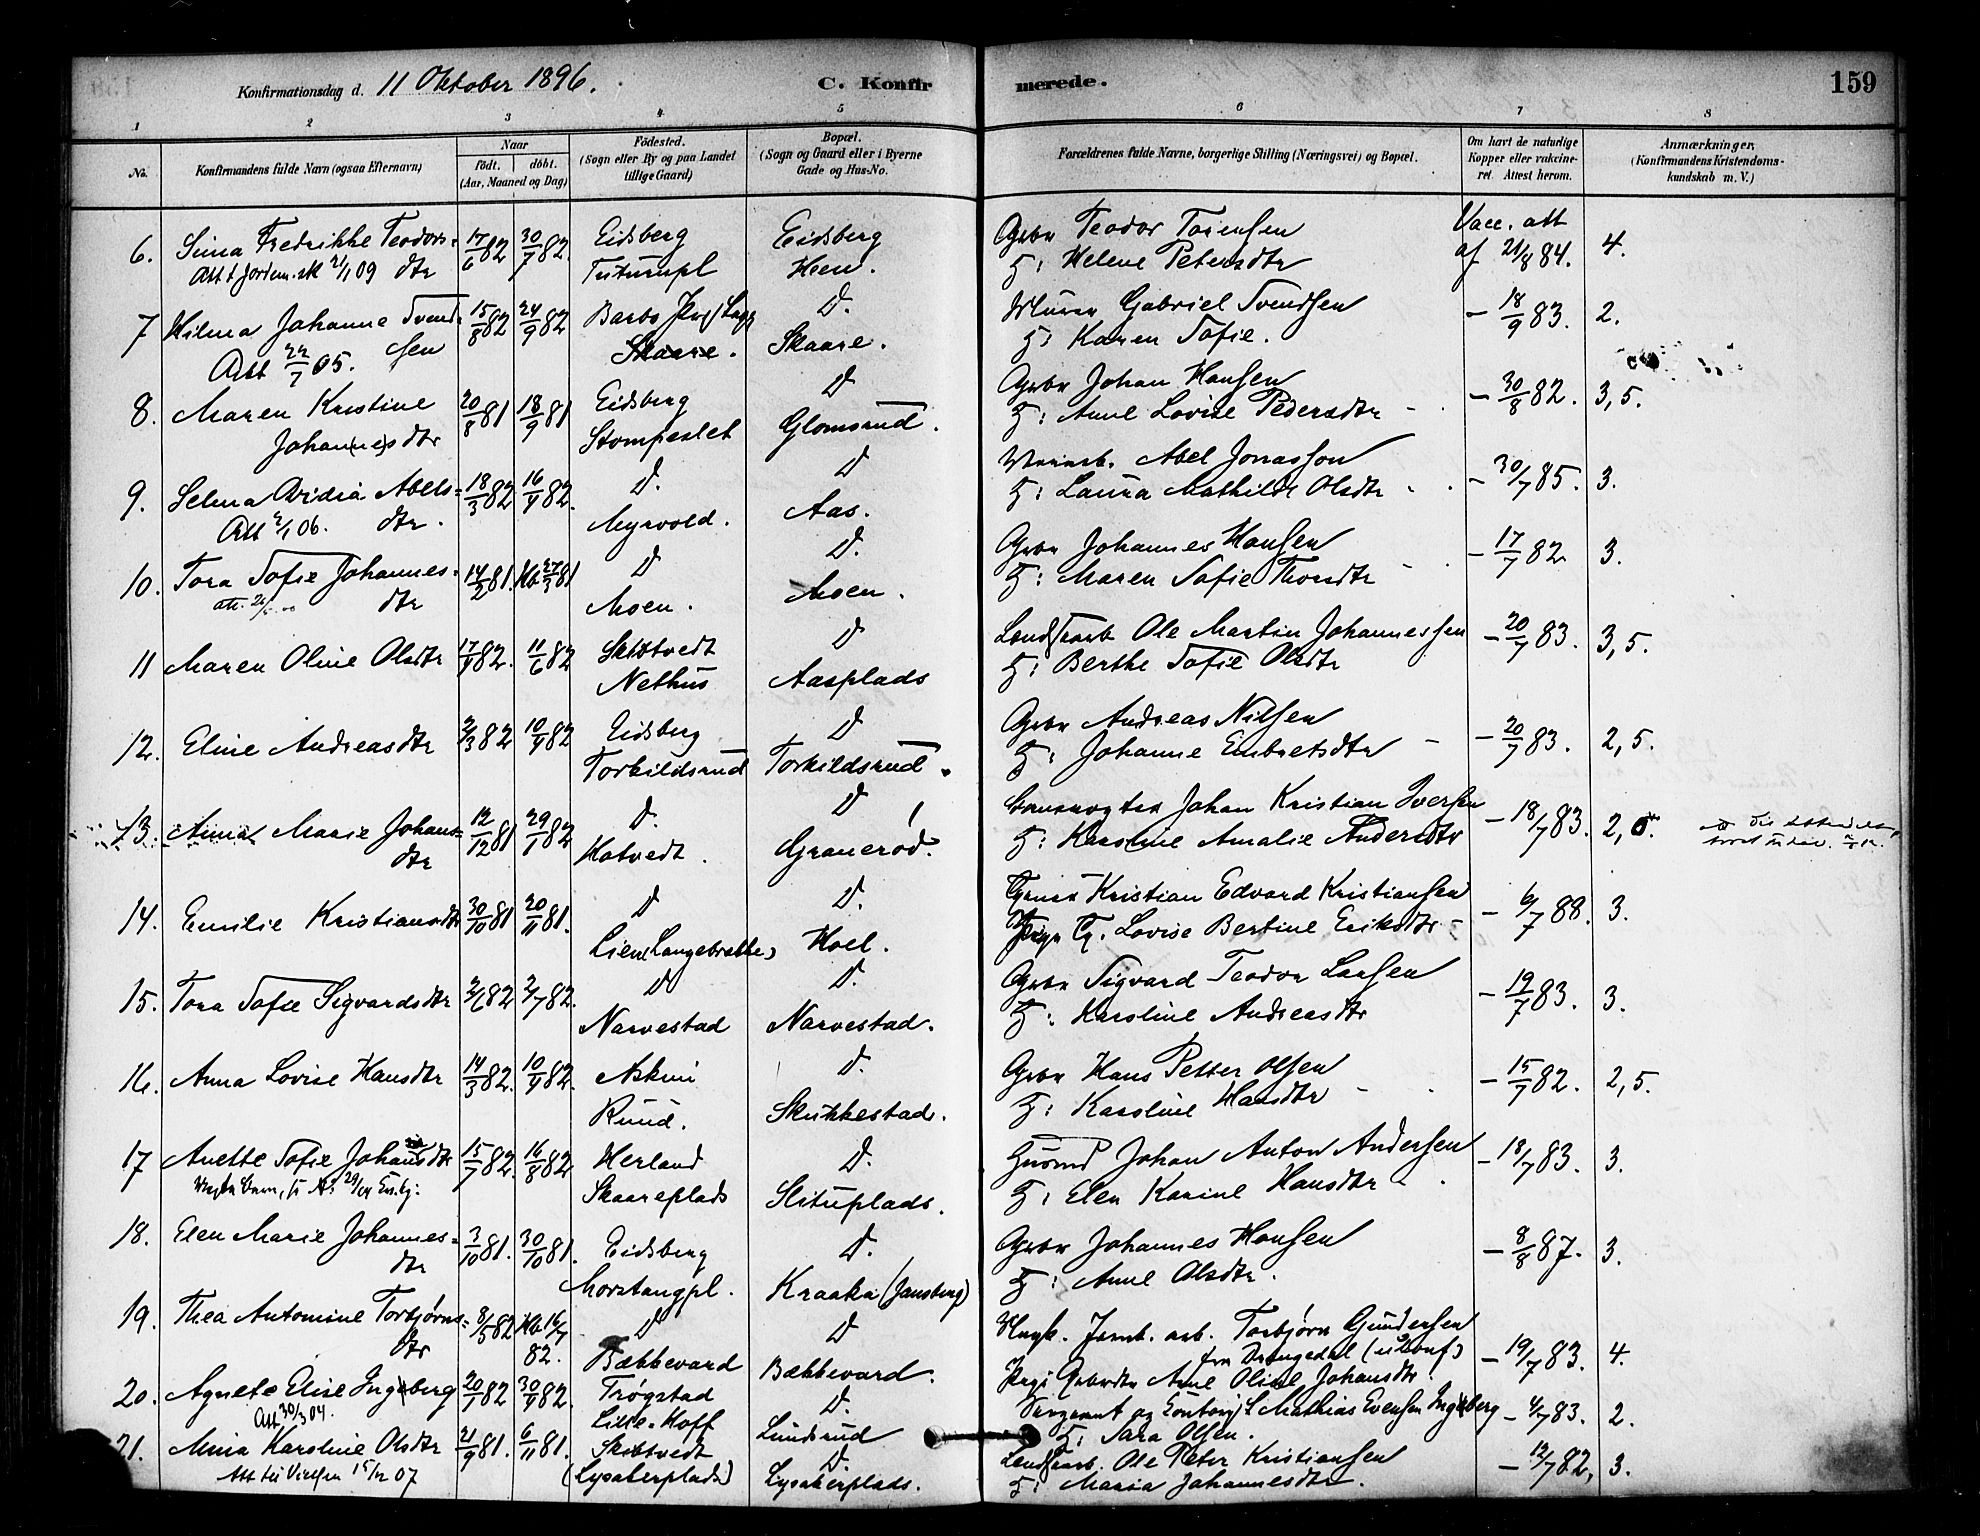 Konfirmationsdag d. 11 Oktober 1896.
C. Konfirmerede.
159
1 2 3 4 5 6 7 8
No.
Konfirmandens fulde Navn (ogsaa Efternavn)
Naar
født. døbt.
(Aar, Maaned og Dag)
Fødested.
(Sogn eller By og paa Landet
tillige Gaard)
Bopæl.
(Sogn og Gaard eller i Byerne
Gade og Hus-No.
Forældrenes fulde Navne, borgerlige Stilling (Næringsvei) og Bopæl.
Om havt de naturlige
Kopper eller vakcine-
ret. Attest herom.
Anmærkninger.
(Konfirmandens Kristendoms-
kundskab m. V.)
6. Sina Fredrikke Teodors- 17/6 82 30/7 82. Eidsberg Eidsberg Grbr Teodor Torensen Vacc. att
dtr Hen. H: Helene Petersdtr af 21/8 84. 4.
7 Hilma Johanne Svend- 15/8 82 24/9 82 D. Murer Gabriel Svendsen - 18/9 83. 2.
sen Skaare. Skaare. H: Karen Sofie.
Att 22/7 05.
8. Maren Kristine 20/8 81 18/9 81 Eidsberg D Grbr Johan Hansen - 30/8 82. 3,5.
Johan(ne)sdtr Stompeslet Glomsrud. H: Anne Lovise Pedersdtr
9. Selma Avidia Abels- 18/3 82 16/4 82. D. D Abel Jonasson - 30/7 85. 3.
Att 2/1 06. dtr. Myrvold. Aas. H: Laura Mathilde Olsdtr
10. Tora Sofie Johannes- 14/2 81. 27/3 81 D D. Grbr Johannes Hansen - 17/7 82 3.
dtr Moen. Moen. H: Maren Sofie Thorsdtr
11 Maren Oline Olsdtr 17/4 82. 11/6 82 Skiptvedt D Ole Martin Johannessen - 20/7 83. 3,5.
Nethus Aasplads H: Berthe Sofie Olsdtr
12. Eline Andreasdtr 2/3 82 10/4 82 Eidsberg D Grbr Andreas Nilsen - 20/7 83. 2,5.
Torkildsrud Torkildsrud. H: Johanne Embretsdtr
13. Anna Marie Johans- 12/12 81 29/1 82 D. D Johan Kristian Iversen - 18/7 83. 2,
dtr Hotvedt. Granerød. H: Karoline Amalie Andersdtr
14. Emilie Kristiansdtr 30/10 81 20/11 81. D D. Kristian Edvard Kristiansen - 6/7 88. 3.
Lien(Langebrække) Hoel. Lovise Bertine Eriksdtr
15. Tora Sofie Sigvardsdtr 2/6 82 2/7 82. D D. Grbr Sigvard Teodor Larsen - 19/7 83. 3.
Narvestad Narvestad. H. Karoline Andreasdtr
16. Anna Lovise Hansdtr 14/3 82. 10/4 82. Askim D. Grbr Hans Petter Olsen - 15/7 82. 2,5.
Ruud. Skukkestad. H: Karoline Hansdtr
17 Anette Sofie Johansdtr 15/7 82. 16/8 82. Herland D. Gusmd Johan Anton Andersen - 18/7 83. 3.
Skaareplads Slituplads. H: Elen Karine Hansdtr
18. Elen Marie Johannes- 3/10 81. 30/10 81. Eidsberg D. Grbr Johannes Hansen - 8/8 87. 3.
dtr Morstangpl. Kraaka (Jansberg) H: Anne Olsdtr.
19. Thea Antomine Torbjørns- 8/5 82 16/7 D D Ungk. Jernb. arb. Torbjørn Gundersen
dtr 82. Bækkevard Bækkevard. fra Drangedal - 19/7 83. 4.
Pige Anne Oline Johansdtr.
20. Agnete Elise Ingeberg 20/1 82 30/4 82. Trøgstad D. Sergeant og Mathias Evensen Ingeberg - 4/7 83. 2.
Att 30/3 04. Lille-Hoff Lundsrud H: Sara Olsen.
21. Mina Karoline Olsdtr 21/9 81. 6/11 81. Skiptvedt D. Ole Peter Kristiansen - 12/7 82, 3.
Att til Vielsen 15/12 07 (Lysakerplads) Lysakerplads. H: Maria Johannesdtr.